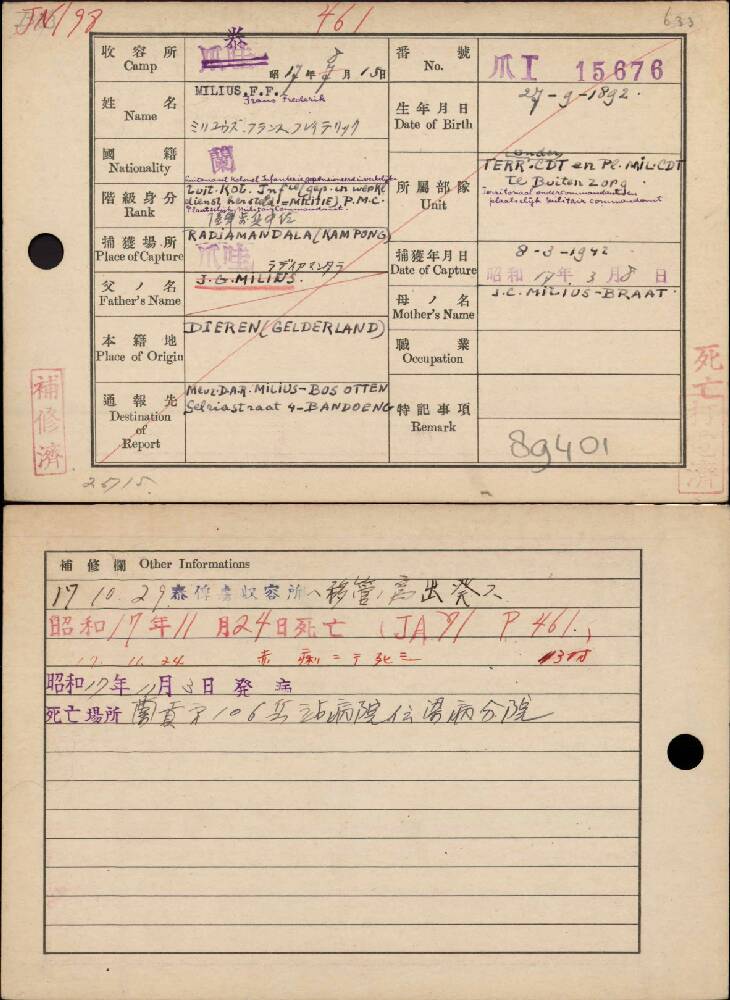 JN/98
461
633
收容所
Camp
泰
爪哇
昭17年8月15日
番號
No.
爪I 15676
姓名
Name
MILIUS. F.F.
Frans Frederik
ミリユウズ.フランス.フレデリック
生年月日
Date of Birth
27-9-1892.
國籍
Nationality
蘭
階級身分
Rank
Luitenant Kolonel Infanterie gepensioneerd in werkelijke
Luit. Kol. Inf ie (gep. in werke
dienst hersteld = MILITIE) P.M.C.
Plaatselijk Militair Commandant.
所屬部隊
Unit
onder
TERR. CDT en Pl. MIL. CDT
te Buitenzorg
Territoriaal ondercommandant en
plaatselijk militair commandant
捕獲場所
Place of Capture
RADJAMANDALA (KAMPONG)
爪哇
ラデイアマンダラ
捕獲年月日
Date of Capture
8-3-1942
昭和17年3月8日
父ノ名
Father's Name
J.G. MILIUS.
母ノ名
Mother's Name
J.C. MILIUS-BRAAT.
本籍地
Place of Origin
DIEREN (GELDERLAND)
職業
Occupation
通報先
Destination
of
Report
Mevr. D.A.R. MILIUS-BOS OTTEN
Selriastraat 4-BANDOENG
特記事項
Remark
89401
補修濟
死亡
濟
25715.
補修欄 Other Informations
17 10.29 泰俘虜収容所ヘ移管ノ為出発ス
昭和17年11月24日死亡 (JA 71 P. 461.)
17. 11. 24 赤痢ニテ死亡
昭和17年11月3日発病
死亡場所 蘭貢第106兵站病院伝染病分院